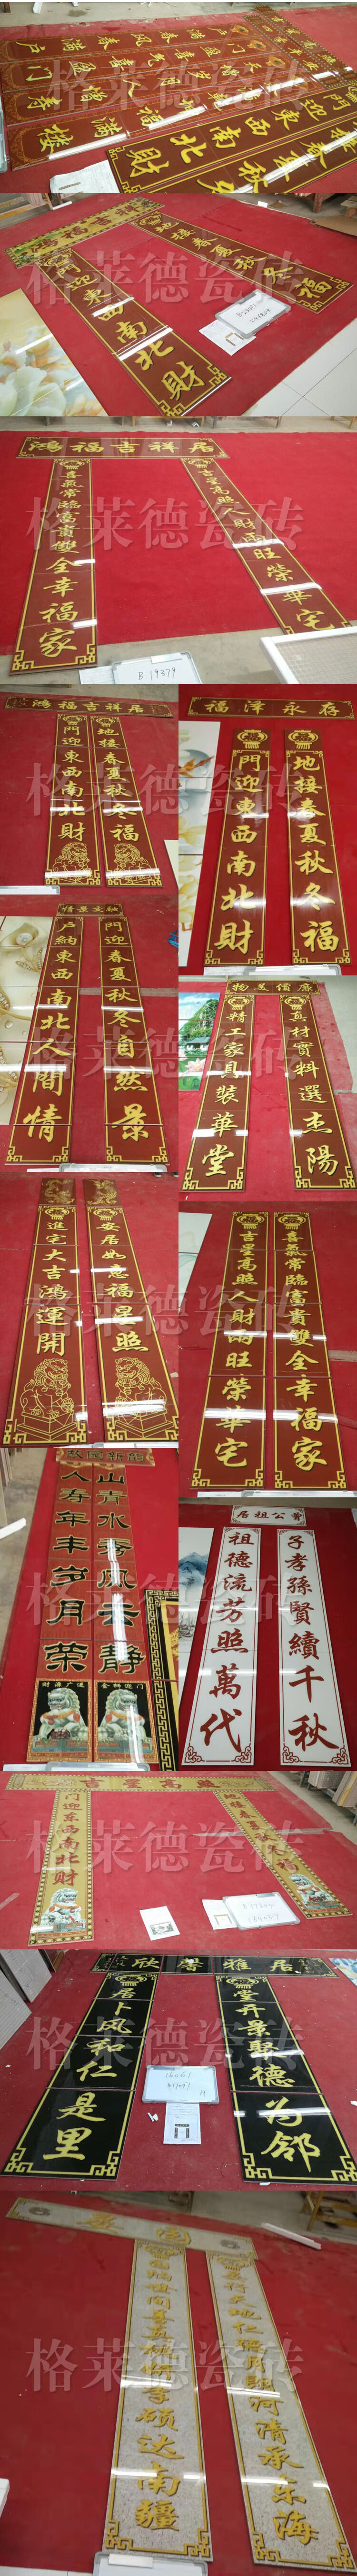 春满户
门迎東西南北財
格莱德瓷砖
鴻福吉祥居
地接春夏秋冬福
門迎東西南北財
格莱德瓷砖
鴻福吉祥居
喜氣常臨富貴雙全幸福家
吉星高照人財兩旺榮華宅
格莱德瓷砖
B 19379
鴻福吉祥居
門迎東西南北財
地接春夏秋冬福
福澤永存
門迎東西南北財
地接春夏秋冬福
格莱德瓷砖
情景交融
戶納東西南北人間情
門迎春夏秋冬自然景
物美價廉
精工家具裝華堂
真材實料選杰陽
格莱德瓷砖
進宅大吉鴻運開
安居如意福星照
吉星高照人財兩旺榮華宅
喜氣常臨富貴雙全幸福家
格莱德瓷砖
故園新韵
人寿年丰岁月荣
山青水秀风云静
财源广进
金狮进门
居祖公曾
祖德流芳照萬代
子孝孫賢續千秋
格莱德瓷砖
吉星高照
门迎东西南北财
地接春夏秋冬福
格莱德瓷砖
欣馨雅居
居卜风和仁是里
堂开景聚德为邻
16061
格莱德瓷砖
硕达南疆
河清承东海
格莱德瓷砖